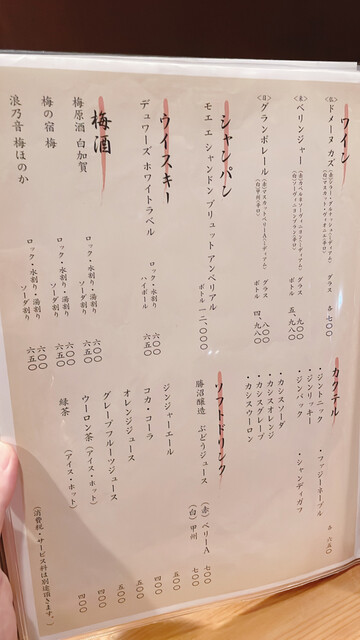 ワイン
〈仏〉ドメーヌ カズ グラス 各七〇〇
〈米〉ベリンジャー グラス 九〇〇
ボトル 五、九〇〇
〈日〉グランポレール グラス 八〇〇
ボトル 四、九八〇
シャンパン
モエ エ シャンドン ブリュット アンペリアル
ボトル 一二、〇〇〇
ウイスキー
デュワーズ ホワイトラベル
ロック・水割り 六〇〇
ハイボール 六五〇
梅酒
梅原酒 白加賀
ロック・水割り・湯割り 六〇〇
ソーダ割り 六五〇
梅の宿 梅
ロック・水割り・湯割り 六〇〇
ソーダ割り 六五〇
浪乃音 梅ほのか
ロック・水割り・湯割り 六〇〇
ソーダ割り 六五〇
カクテル
各 六五〇
・ジントニック ・ファジーネーブル
・ジンリッキー
・ジンバック ・シャンディガフ
・カシスソーダ
・カシスオレンジ
・カシスグレープ
・カシスウーロン
ソフトドリンク
勝沼醸造 ぶどうジュース
(赤) ベリーA 七〇〇
(白) 甲州 七〇〇
ジンジャーエール 五〇〇
コカ・コーラ 五〇〇
オレンジジュース 五〇〇
グレープフルーツジュース 五〇〇
ウーロン茶 (アイス・ホット) 四〇〇
緑茶 (アイス・ホット) 四〇〇
(消費税・サービス料は別途頂きます。)